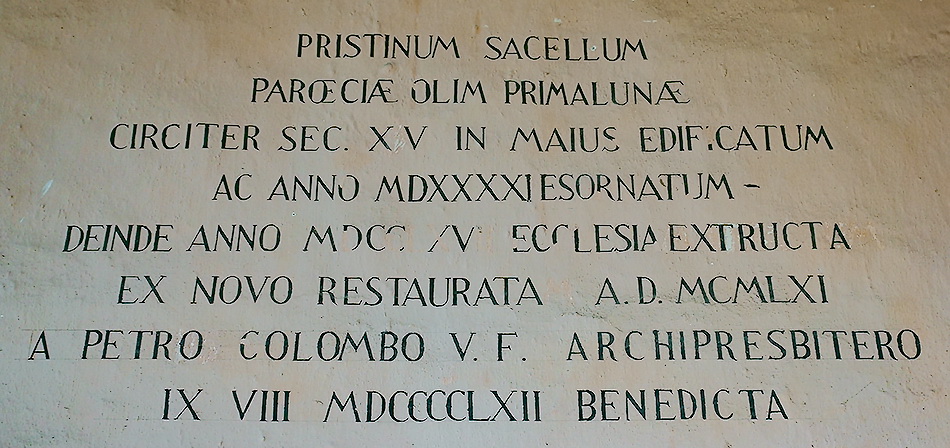 PRISTINUM SACELLUM
PARŒCIÆ OLIM PRIMALUNÆ
CIRCITER SEC. XV IN MAIUS EDIFICATUM
AC ANNO MDXXXXI ESORNATUM –
DEINDE ANNO ECCLESIA EXTRUCTA
EX NOVO RESTAURATA A.D. MCMLXI
A PETRO COLOMBO V. F. ARCHIPRESBITERO
IX VIII MDCCCCLXII BENEDICTA